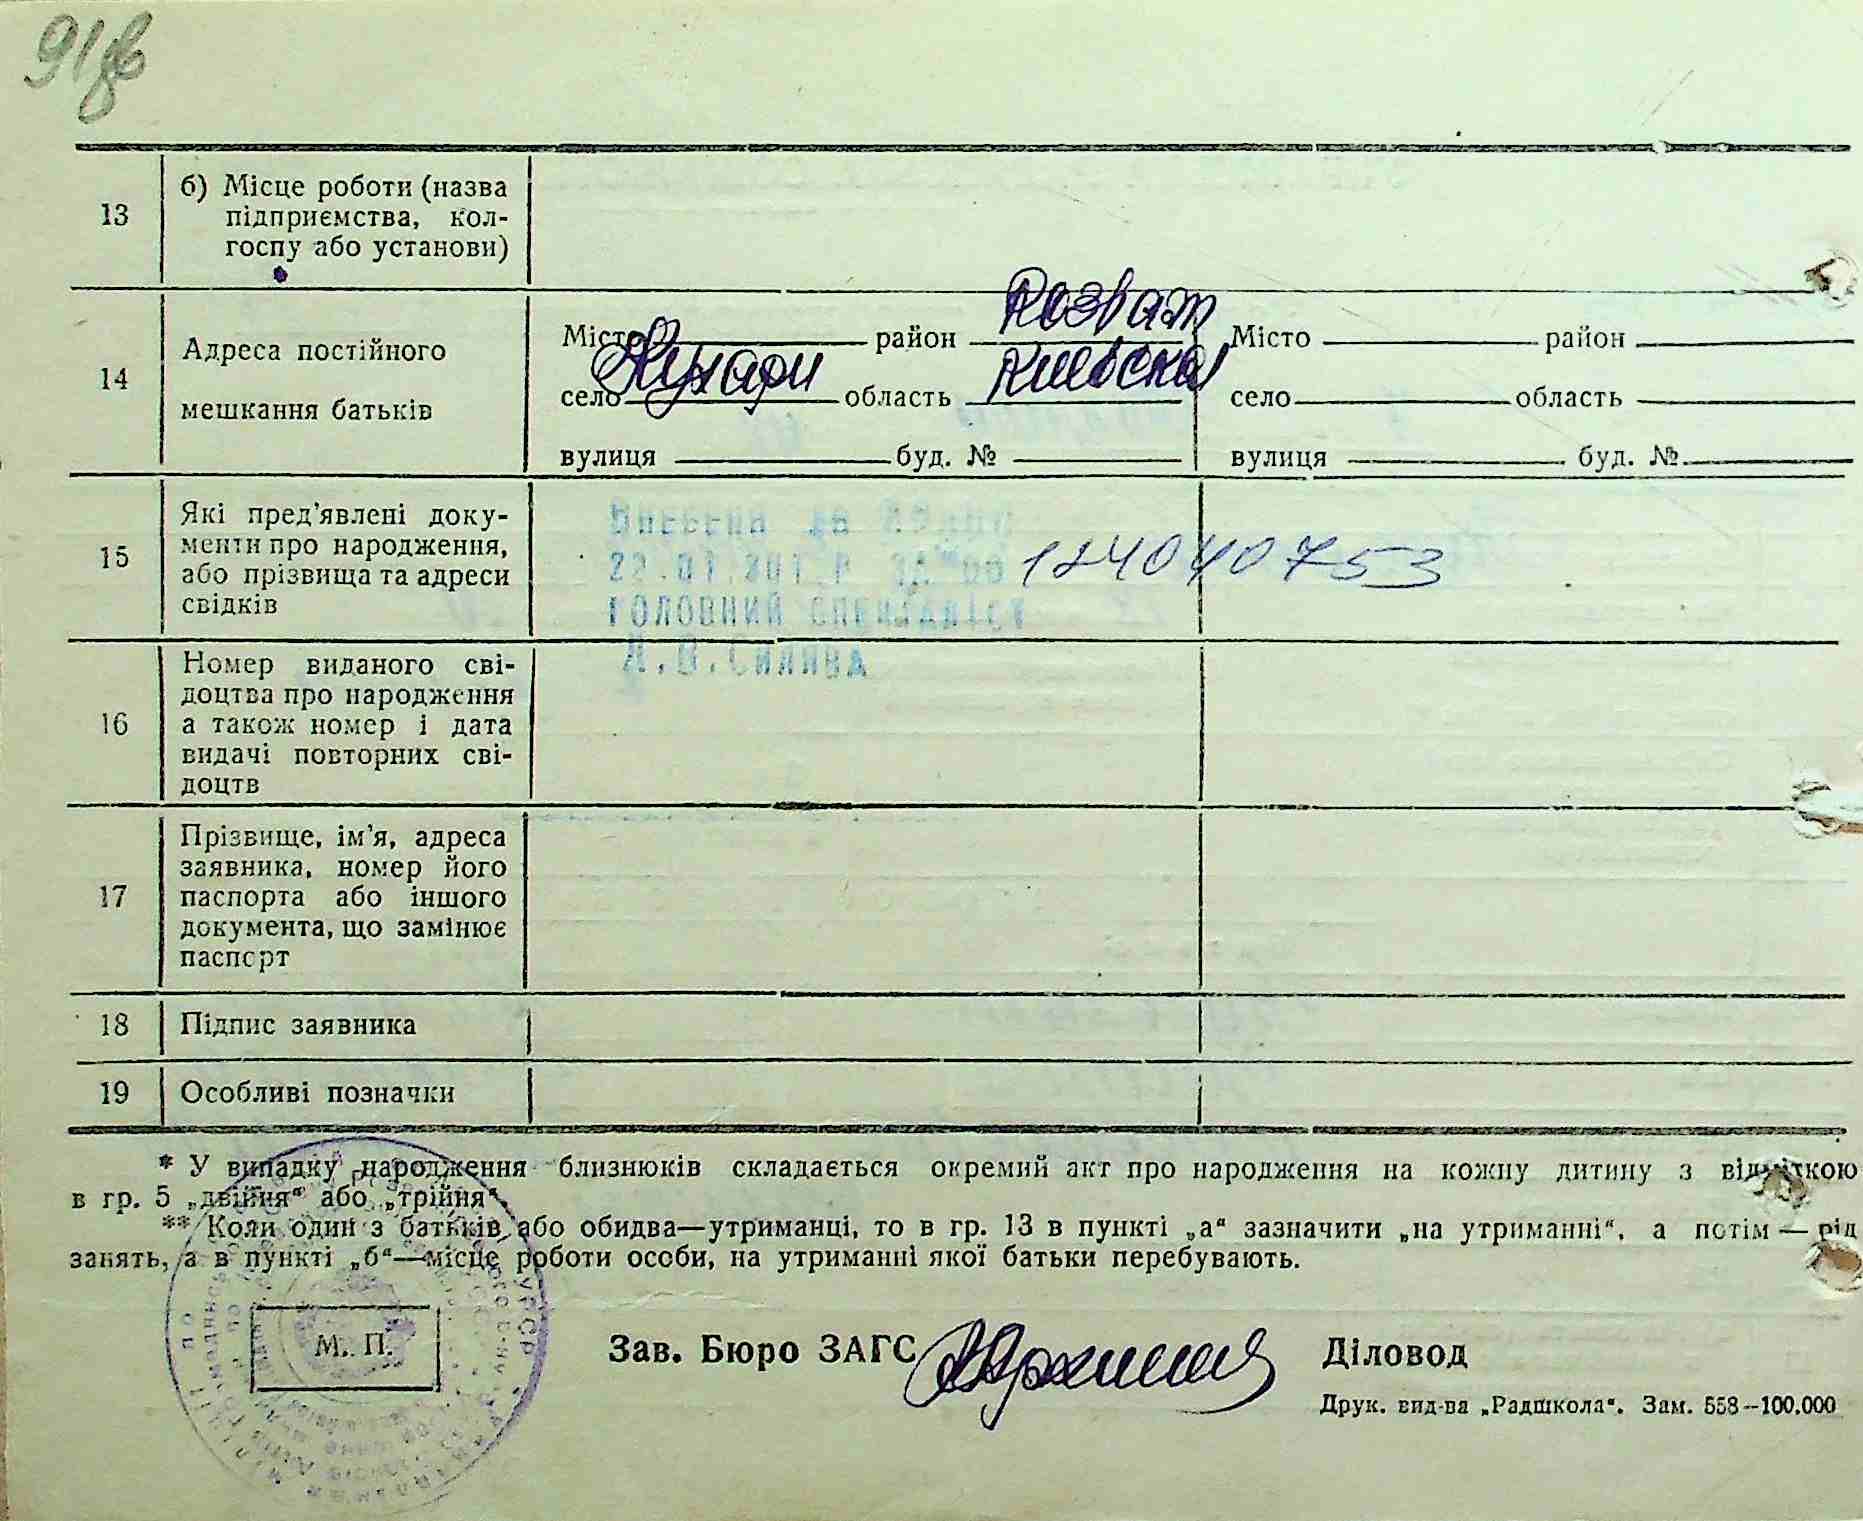 91 зв
13
б) Місце роботи (назва
підприємства, кол-
госпу або установи)
14
Адреса постійного
мешкання батьків
Місто район Розваж
село Кухари область Киевская
вулиця буд. №
Місто район
село область
вулиця буд. №
15
Які пред'явлені доку-
менти про народження,
або прізвища та адреси
свідків
головний спеціаліст
124040753
16
Номер виданого сві-
доцтва про народження
а також номер і дата
видачі повторних сві-
доцтв
17
Прізвище, ім'я, адреса
заявника, номер його
паспорта або іншого
документа, що замінює
паспорт
18
Підпис заявника
19
Особливі позначки
* У випадку народження близнюків складається окремий акт про народження на кожну дитину з відміткою
в гр. 5 „двійня“ або „трійня“.
** Коли один з батьків або обидва—утриманці, то в гр. 13 в пункті „а“ зазначити „на утриманні“, а потім — рід
занять, а в пункті „б“—місце роботи особи, на утриманні якої батьки перебувають.
М. П.
Зав. Бюро ЗАГС
Діловод
Друк. вид-ва „Радшкола“. Зам. 558—100.000